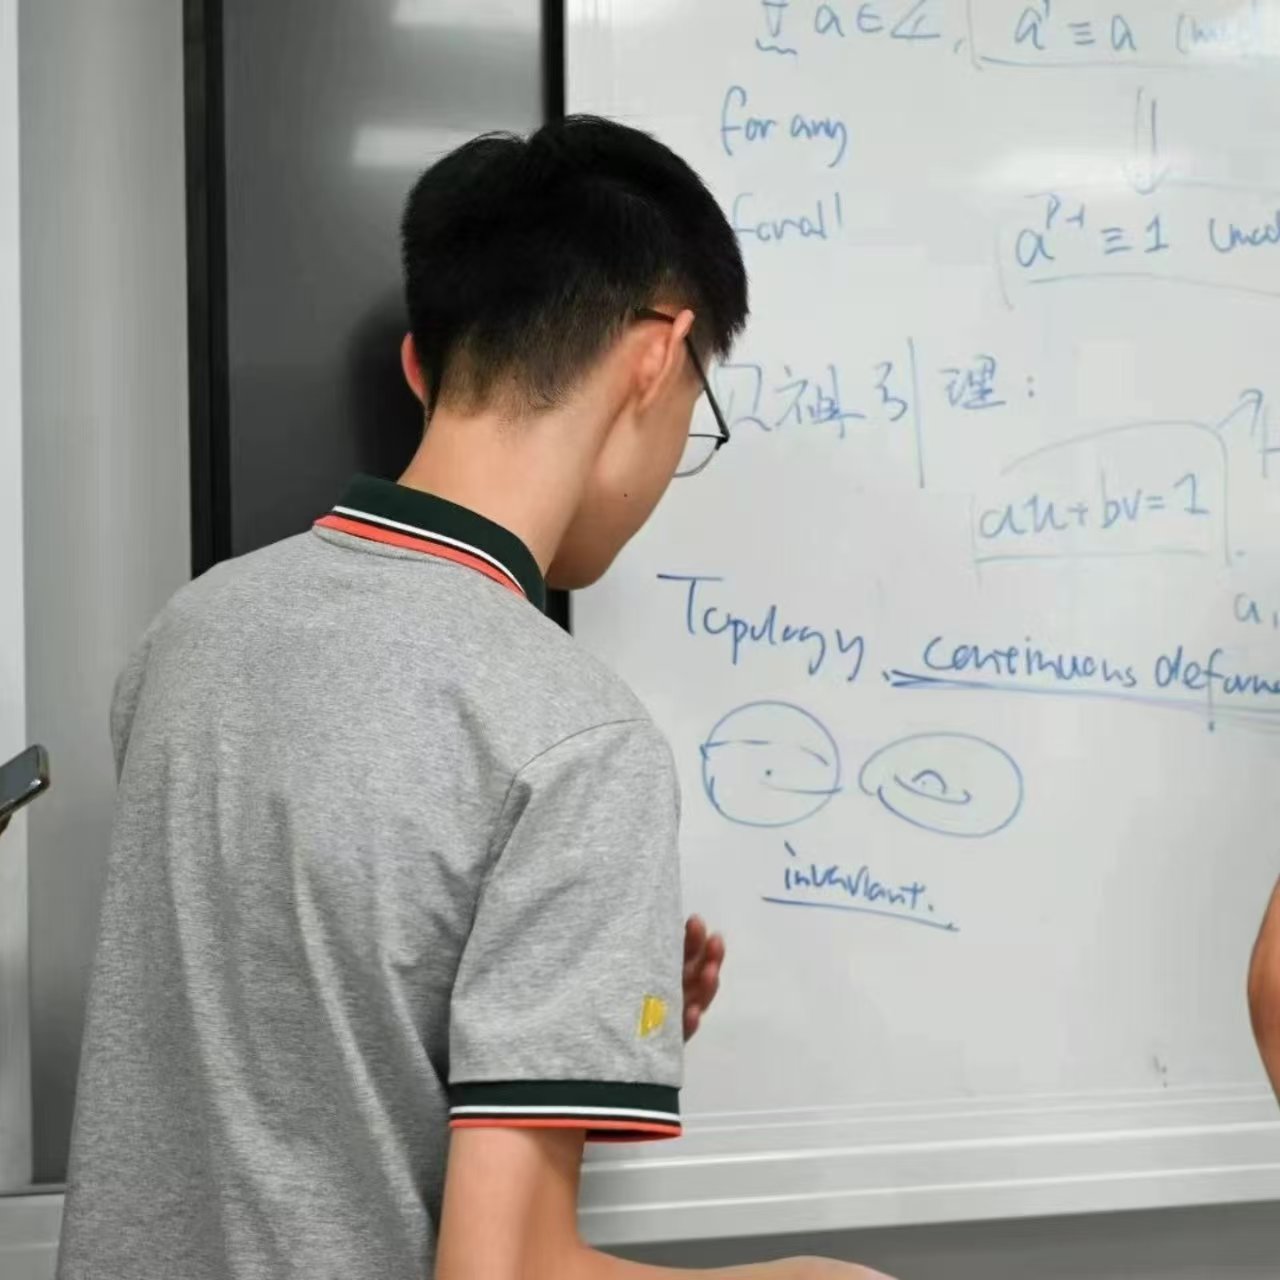 ∀ a ∈ Z, a^p ≡ a (mod
for any
forall
a^{p-1} ≡ 1 (mod
祖引理:
au+bv=1
a,
Topology, continuous deform
invariant.